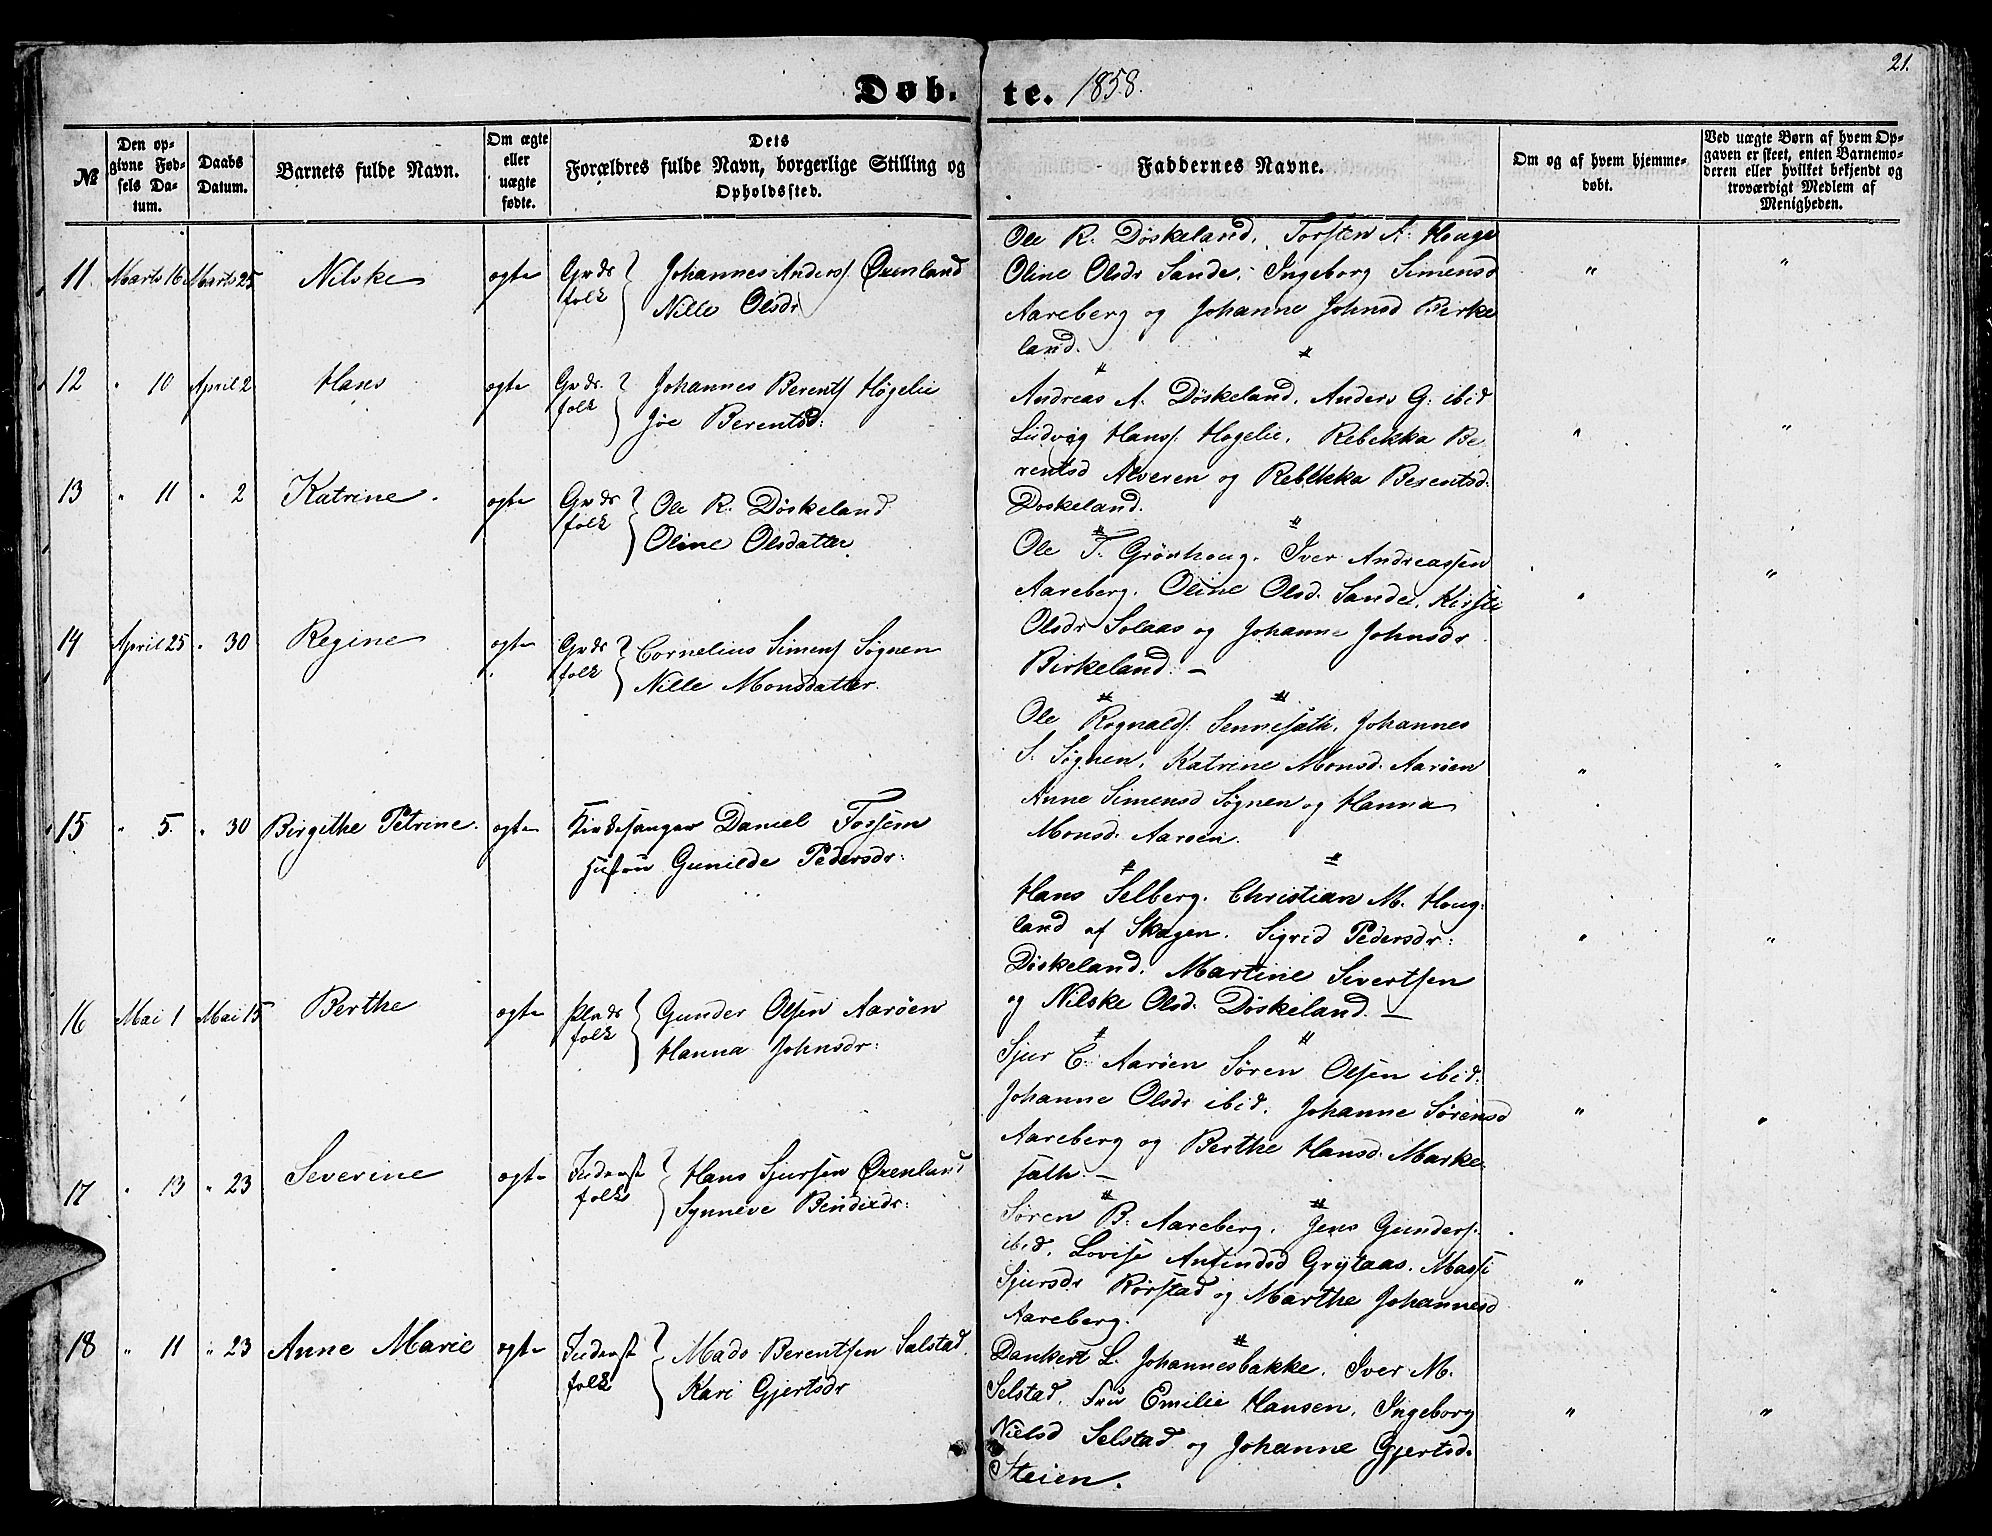 21.
Døb- te. 1858.
№
Den op-
givne Fød-
sels Da-
tum.
Daabs
Datum.
Barnets fulde Navn.
Om ægte
eller
uægte
fødte.
Dets
Forældres fulde Navn, borgerlige Stilling og
Opholdssted.
Faddernes Navne.
Om og af hvem hjemme-
døbt.
Ved uægte Børn af hvem Op-
gaven er skeet, enten Barnemo-
deren eller hvilket bekjendt og
troværdigt Medlem af
Menigheden.
11. Marts 16 Marts 25 Nilske ægte Grds folk Johannes Anders. Øxenland
Nille Olsdr
Ole R. Døskeland, Torsten A. Houge
Oline Olsdr Sande, Ingeborg Simensd
Aareberg og Johanne Johnsd Birke
land.
12 " 10 April 2 Hans ægte Grds. folk Johannes Berents. Høgelie
Joe Berentsd:
Andreas A. Døskeland, Anders G. ibid
Ludvig Hans. Høgelie, Rebekka Be
rentsd Alveren og Rebekka Berentsd.
Døskeland.
13 " 11 " 2 Katrine ægte Grds folk Ole R. Døskeland
Oline Olsdatter
Ole T. Grönhoug, Iver Andreassen
Aareberg, Oline Olsd. Sande, Kirsti
Olsdr Solaas og Johanne Johnsdr
Birkeland. —
14 April 25 " 30 Regine ægte Grds folk Cornelius Simens. Søgnen
Nille Monsdatter.
Ole Rognalds. Sennesæth, Johannes
S. Søgnen, Katrine Monsd. Aaröen
Anne Simensd Søgnen og Hanna
Monsd. Aaröen.
15 " 5. " 30 Birgithe Petrine. ægte Kirkesanger Daniel Fossem
Hustru Gunilde Pedersdr:
Hans Selberg. Christian M. Houg-
land af Skagen. Sigrid Pedersdr:
Døskeland. Martine Sivertsen
og Nilske Olsd. Döskeland. —
16 Mai 1 Mai 15 Berthe ægte Plds folk Gunder Olsen Aaröen
Hanna Johnsdr:
Sjur C. Aaröen Søren Olsen ibid.
Johanne Olsdr ibid. Johanne Sørensd
Aareberg og Berthe Hansd. Marke-
sæth. —
17 " 13 " 23 Severine ægte Inderst folk Hans Sjursen Øxenland
Synneve Bendixdr:
Søren B. Aareberg, Jens Gunders.
ibid, Lovise Anfindsd Grytaas. Massi
Sjursdr Rørstad og Marthe Johannesd
Aareberg.
18 " 11 " 23 Anne Marie ægte Inderst folk Mads Berentsen Sælstad
Kari Gjertsdr
Dankert L. Johannesbakke. Iver M.
Selstad. Fru Emilie Hansen, Ingeborg
Nielsd Selstad og Johanne Gjertsd.
Steien.